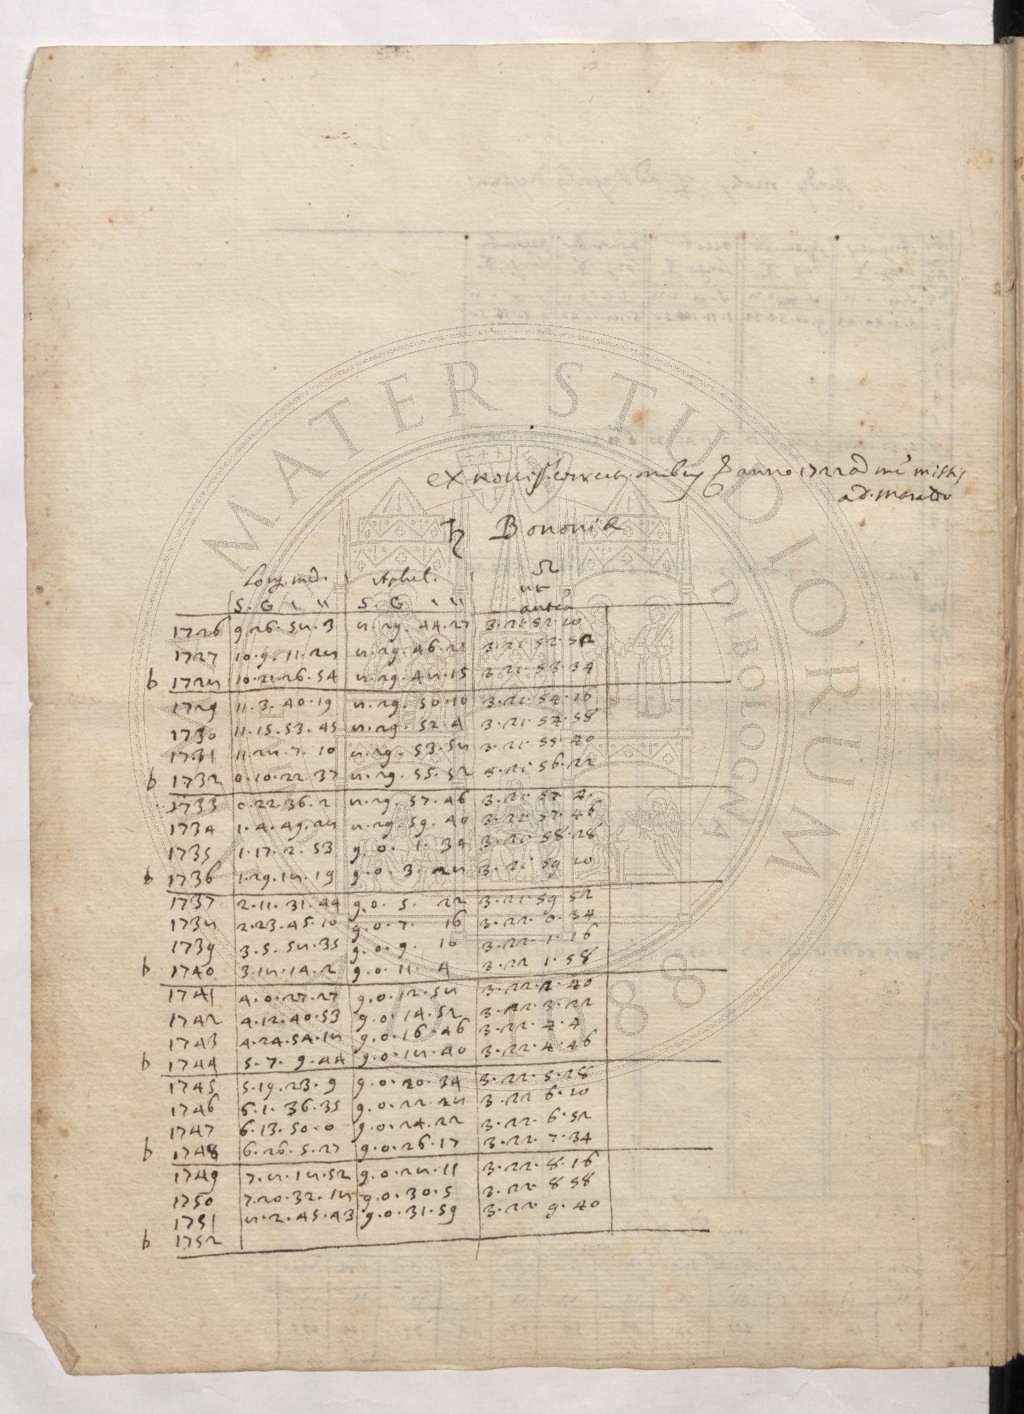 MATER STUDIORUM
ex novis anno 1722
♄ Bononiæ
Long. med. Aphel. ☊
S. G. ' " S. G. ' " ut antea
1726 9.26.58.3 8.29.44.27 3.21.52.10
1727 10.9.11.28 8.29.46.21 3.21.52.52
b 1728 10.21.26.54 8.29.48.15 3.21.53.34
1729 11.3.40.19 8.29.50.10 3.21.54.16
1730 11.15.53.45 8.29.52.4 3.21.54.58
1731 11.28.7.10 8.29.53.58 3.21.55.40
b 1732 0.10.22.37 8.29.55.52 3.21.56.22
1733 0.22.36.2 8.29.57.46 3.21.57.4
1734 1.4.49.28 8.29.59.40 3.21.57.46
1735 1.17.2.53 9.0.1.34 3.21.58.28
b 1736 1.29.18.19 9.0.3.28 3.21.59.10
1737 2.11.31.44 9.0.5.22 3.21.59.52
1738 2.23.45.10 9.0.7.16 3.22.0.34
1739 3.5.58.35 9.0.9.10 3.22.1.16
b 1740 3.18.14.2 9.0.11.4 3.22.1.58
1741 4.0.27.27 9.0.12.58 3.22.2.40
1742 4.12.40.53 9.0.14.52 3.22.3.22
1743 4.24.54.18 9.0.16.46 3.22.4.4
b 1744 5.7.9.44 9.0.18.40 3.22.4.46
1745 5.19.23.9 9.0.20.34 3.22.5.28
1746 6.1.36.35 9.0.22.28 3.22.6.10
1747 6.13.50.0 9.0.24.22 3.22.6.52
b 1748 6.26.5.27 9.0.26.17 3.22.7.34
1749 7.8.18.52 9.0.28.11 3.22.8.16
1750 7.20.32.18 9.0.30.5 3.22.8.58
1751 8.2.45.43 9.0.31.59 3.22.9.40
b 1752